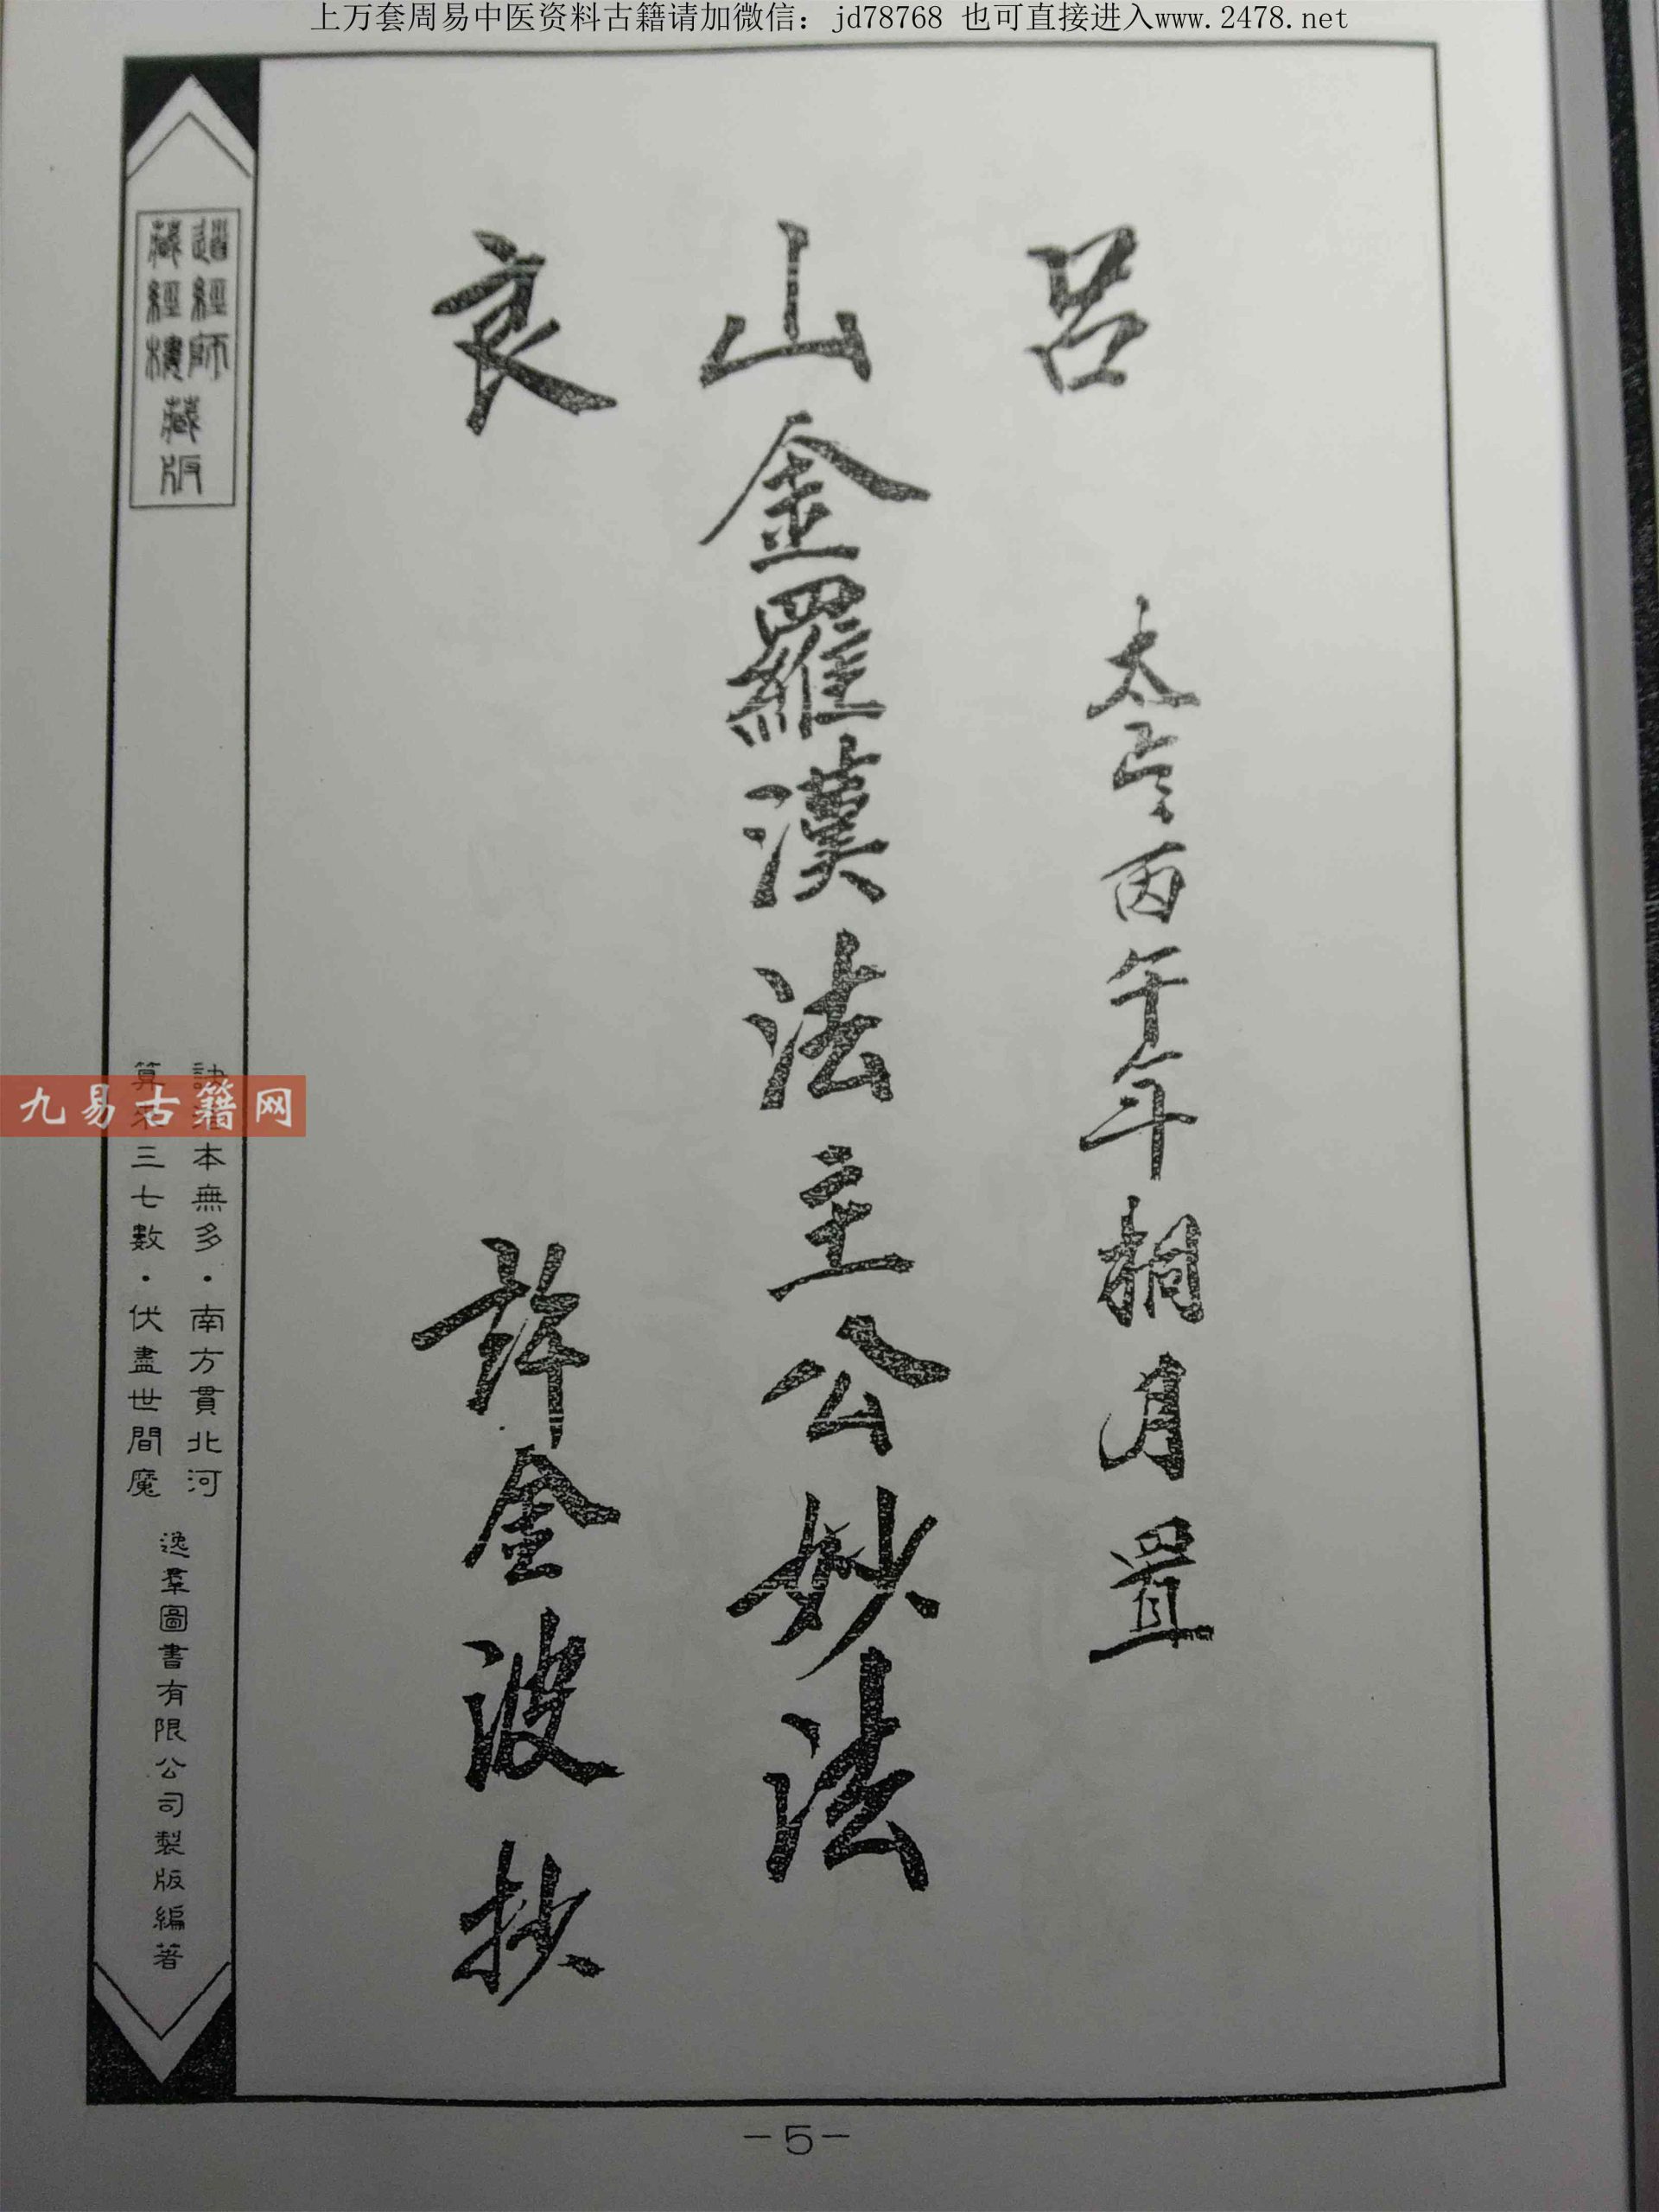 上万套周易中医资料古籍请加微信：jd78768 也可直接进入www.2478.net
呂
太歲丙午年桐月置
山金羅漢法主公妙法
良
許金波抄
道經師
藏經樓
藏版
訣法本無多·南方貫北河
算來三七數·伏盡世間魔
逸羣圖書有限公司製版編著
九易古籍网
-5-